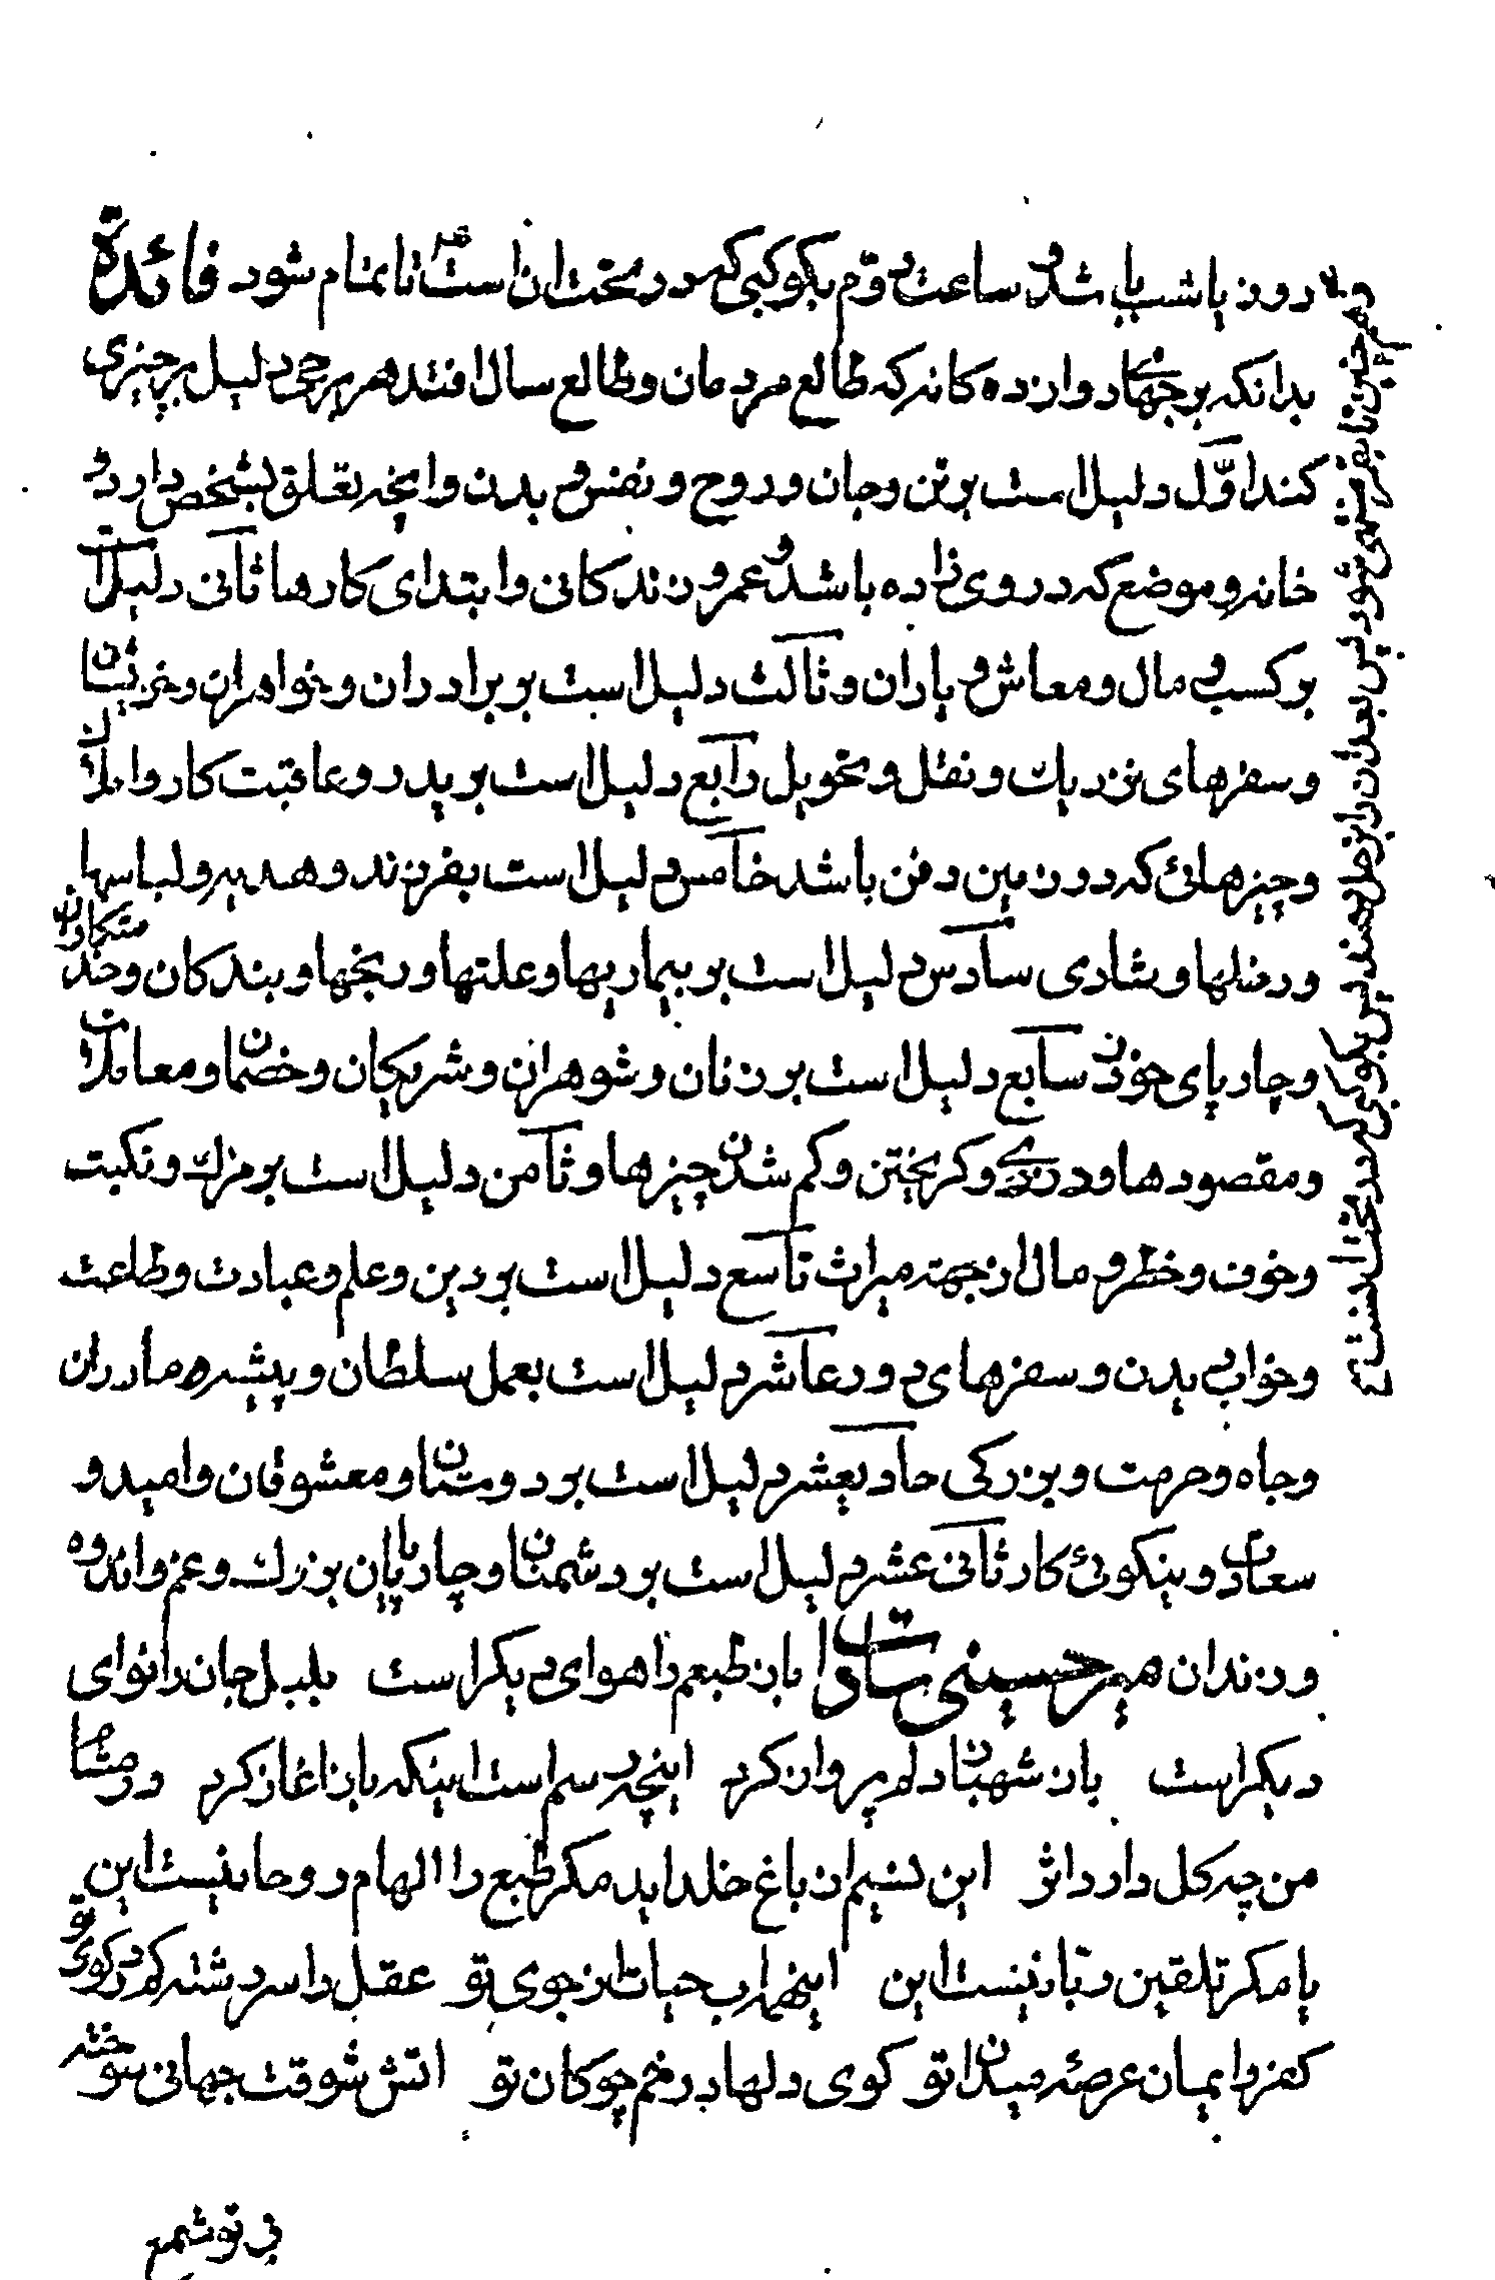 روز یا شب یا شد و ساعت دوم بکوکبی که در تحت ان است تا تمام شود فائدة
بدانکه برجهای دوازده کانه که طالع مردمان و طالع سال افتد هر برجی دلیل بر چیزی
کند اوّل دلیل است بر تن و جان و روح و نفس و بدن و انچه تعلق بشخص دارد و
خانه و موضع که در وی زاده باشد و عمر و زندکانی و ابتدای کارها ثانی دلیل است
بر کسب و مال و معاش و یاران و ثالث دلیل است بر برادران و خواهران و خویشان
و سفرهای نزدیک و نقل و تحویل رابع دلیل است بر پدر و عاقبت کار و املاک
و چیزهائ که در زمین دفن باشد خامس دلیل است بفرزند و هدیه و لباسها
و رسلها و شادی سادس دلیل است بر بیماریها و علتها و رنجها و بندکان و خدمتکاران
و چارپای خورد سابع دلیل است بر زنان و شوهران و شریکان و خصمان و معاملات
و مقصودها و دزدی و کریختن و کم شدن چیزها و ثامن دلیل است بر مرک و نکبت
و خوف و خطر و مال از جهة میراث تاسع دلیل است بر دین و علم و عبادت و طاعت
و خواب دیدن و سفرهای دور عاشر دلیل است بعمل سلطان و پیشه و مادران
و جاه و حرمت و بزرکی حادیعشر دلیل است بر دوستان و معشوقان و امید و
سعادت و نیکوئ کار ثانی عشر دلیل است بر دشمنان و چارپایان بزرک و غم و اندوه
و زندان میر حسینی سادات باز طبعم را هوای دیکر است بلبل جان را نوای
دیکر است باز شهباز دلم پرواز کرد اینچه رسم است اینکه باز اغاز کرد در مشام
من چه کل دارد اثر این نسیم از باغ خلد اید مکر طبع را الهام روحانیست این
یا مکر تلقین ربانیست این اینهمه اب حیات از جوی تو عقل را سررشته کم در کوی تو
کفر و ایمان عرصه میدان تو کوی دلها در خم چوکان تو اتش شوقت جهانی سوخته
بی تو شمع
و همچنین تا بقمر منتهی شود پس بعد از ان باز زحل دهند پس بکوکبی که در تحت اوست